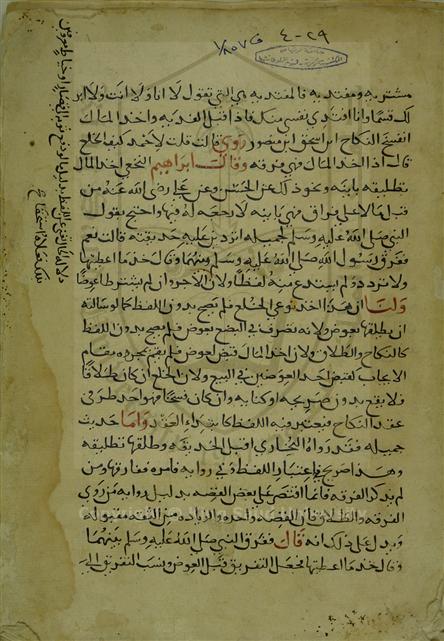 ٢٩-٤
مشتريه ومفتديه فالمفتديه هي التي تقول لا انا ولا انت ولا ابر
لك قسما وانا افتدي نفسي منك فاذا قبل الفديه واخذ المال
انفسخ النكاح ابن اسحق ابن منصور روي قال قلت لاحمد كيف الخلع
قال اذا اخذ المال فهي فرقه وقال ابراهيم النخعي اخذ المال
تطليقه باينه ونحو ذلك عن الحسن وعن علي رضي الله عنه من
قبل مالا على فراق فهي باينه لا رجعه له فيها واحتج بقول
النبي صلى الله عليه وسلم لجميله اتردين عليه حديقته قالت نعم
ففرق رسول الله صلى الله عليه وسلم بينهما وقال خذ ما اعطيتها
ولا تزدد ولم يستدع منه لفظا ولان الاجره ان لم يشترطا عوضا
ولنا ان هذا احد نوعي الخلع فلم يصح بدون اللفظ كما لو سالته
ان يطلقها بعوض ولانه تصرف في البضع بعوض فلم يصح بدون اللفظ
كالنكاح والطلاق ولان اخذ المال قبض لعوض فلم يقم بمجرده مقام
الايجاب كقبض احد العوضين في البيع ولان الخلع ان كان طلاقا
فلا يقع بدون صريحه او كنايه وان كان فسخا فهو احد طرفي
عقد النكاح فيعتبر فيه اللفظ كابتداء العقد واما حديث
جميله فقد رواه البخاري اقبل الحديقه وطلقها تطليقه
وهذا صريح في اعتبار اللفظ وفي روايه فامره ففارقها ومن
لم يذكر الفرقه فانما اقتصر على بعض القصه بدليل روايه من روي
الفرقه والطلاق فان القصه واحده والزياده من الثقه مقبوله
ويدل على ذلك انه قال ففرق النبي صلى الله عليه وسلم بينهما
وقال خذ ما اعطيتها فجعل التفريق قبل العوض ونسب التفريق اليه
دلاله الحال تغني عن اللفظ بدليل ما لو دفع ثوبه الى قصار او خياط معروفين
بذلك فعملاه استحقا